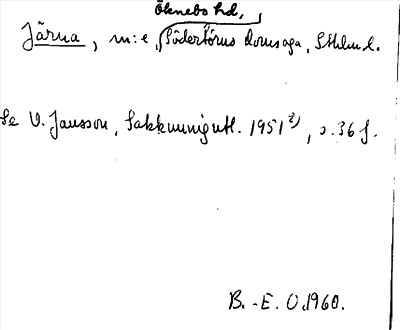 Öknebo hd.
Järna, m:e, Södertörns domsaga, Sthlm l.
Se V. Jansson, Sakkunnigutl. 1951²⁾, s. 36 f.
B.-E. O. 1960.